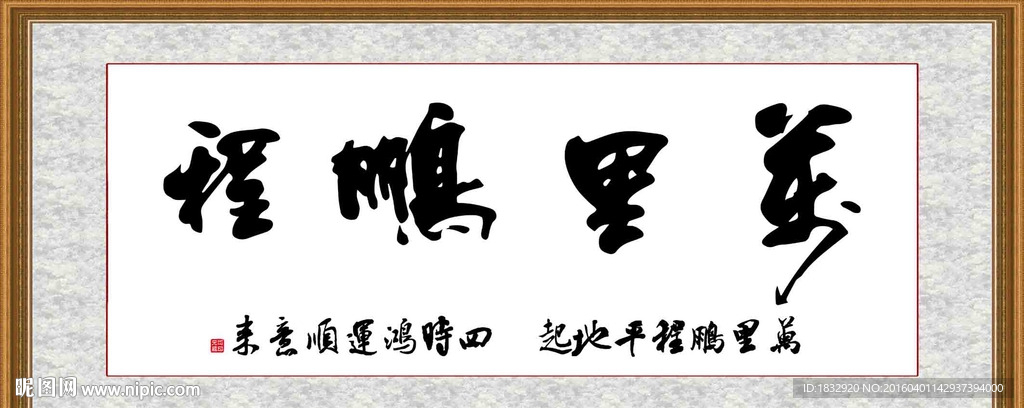 萬里鵬程
萬里鵬程平地起 四時鴻運順意來
昵图网 www.nipic.com
ID:1832920 NO:20160401142937394000